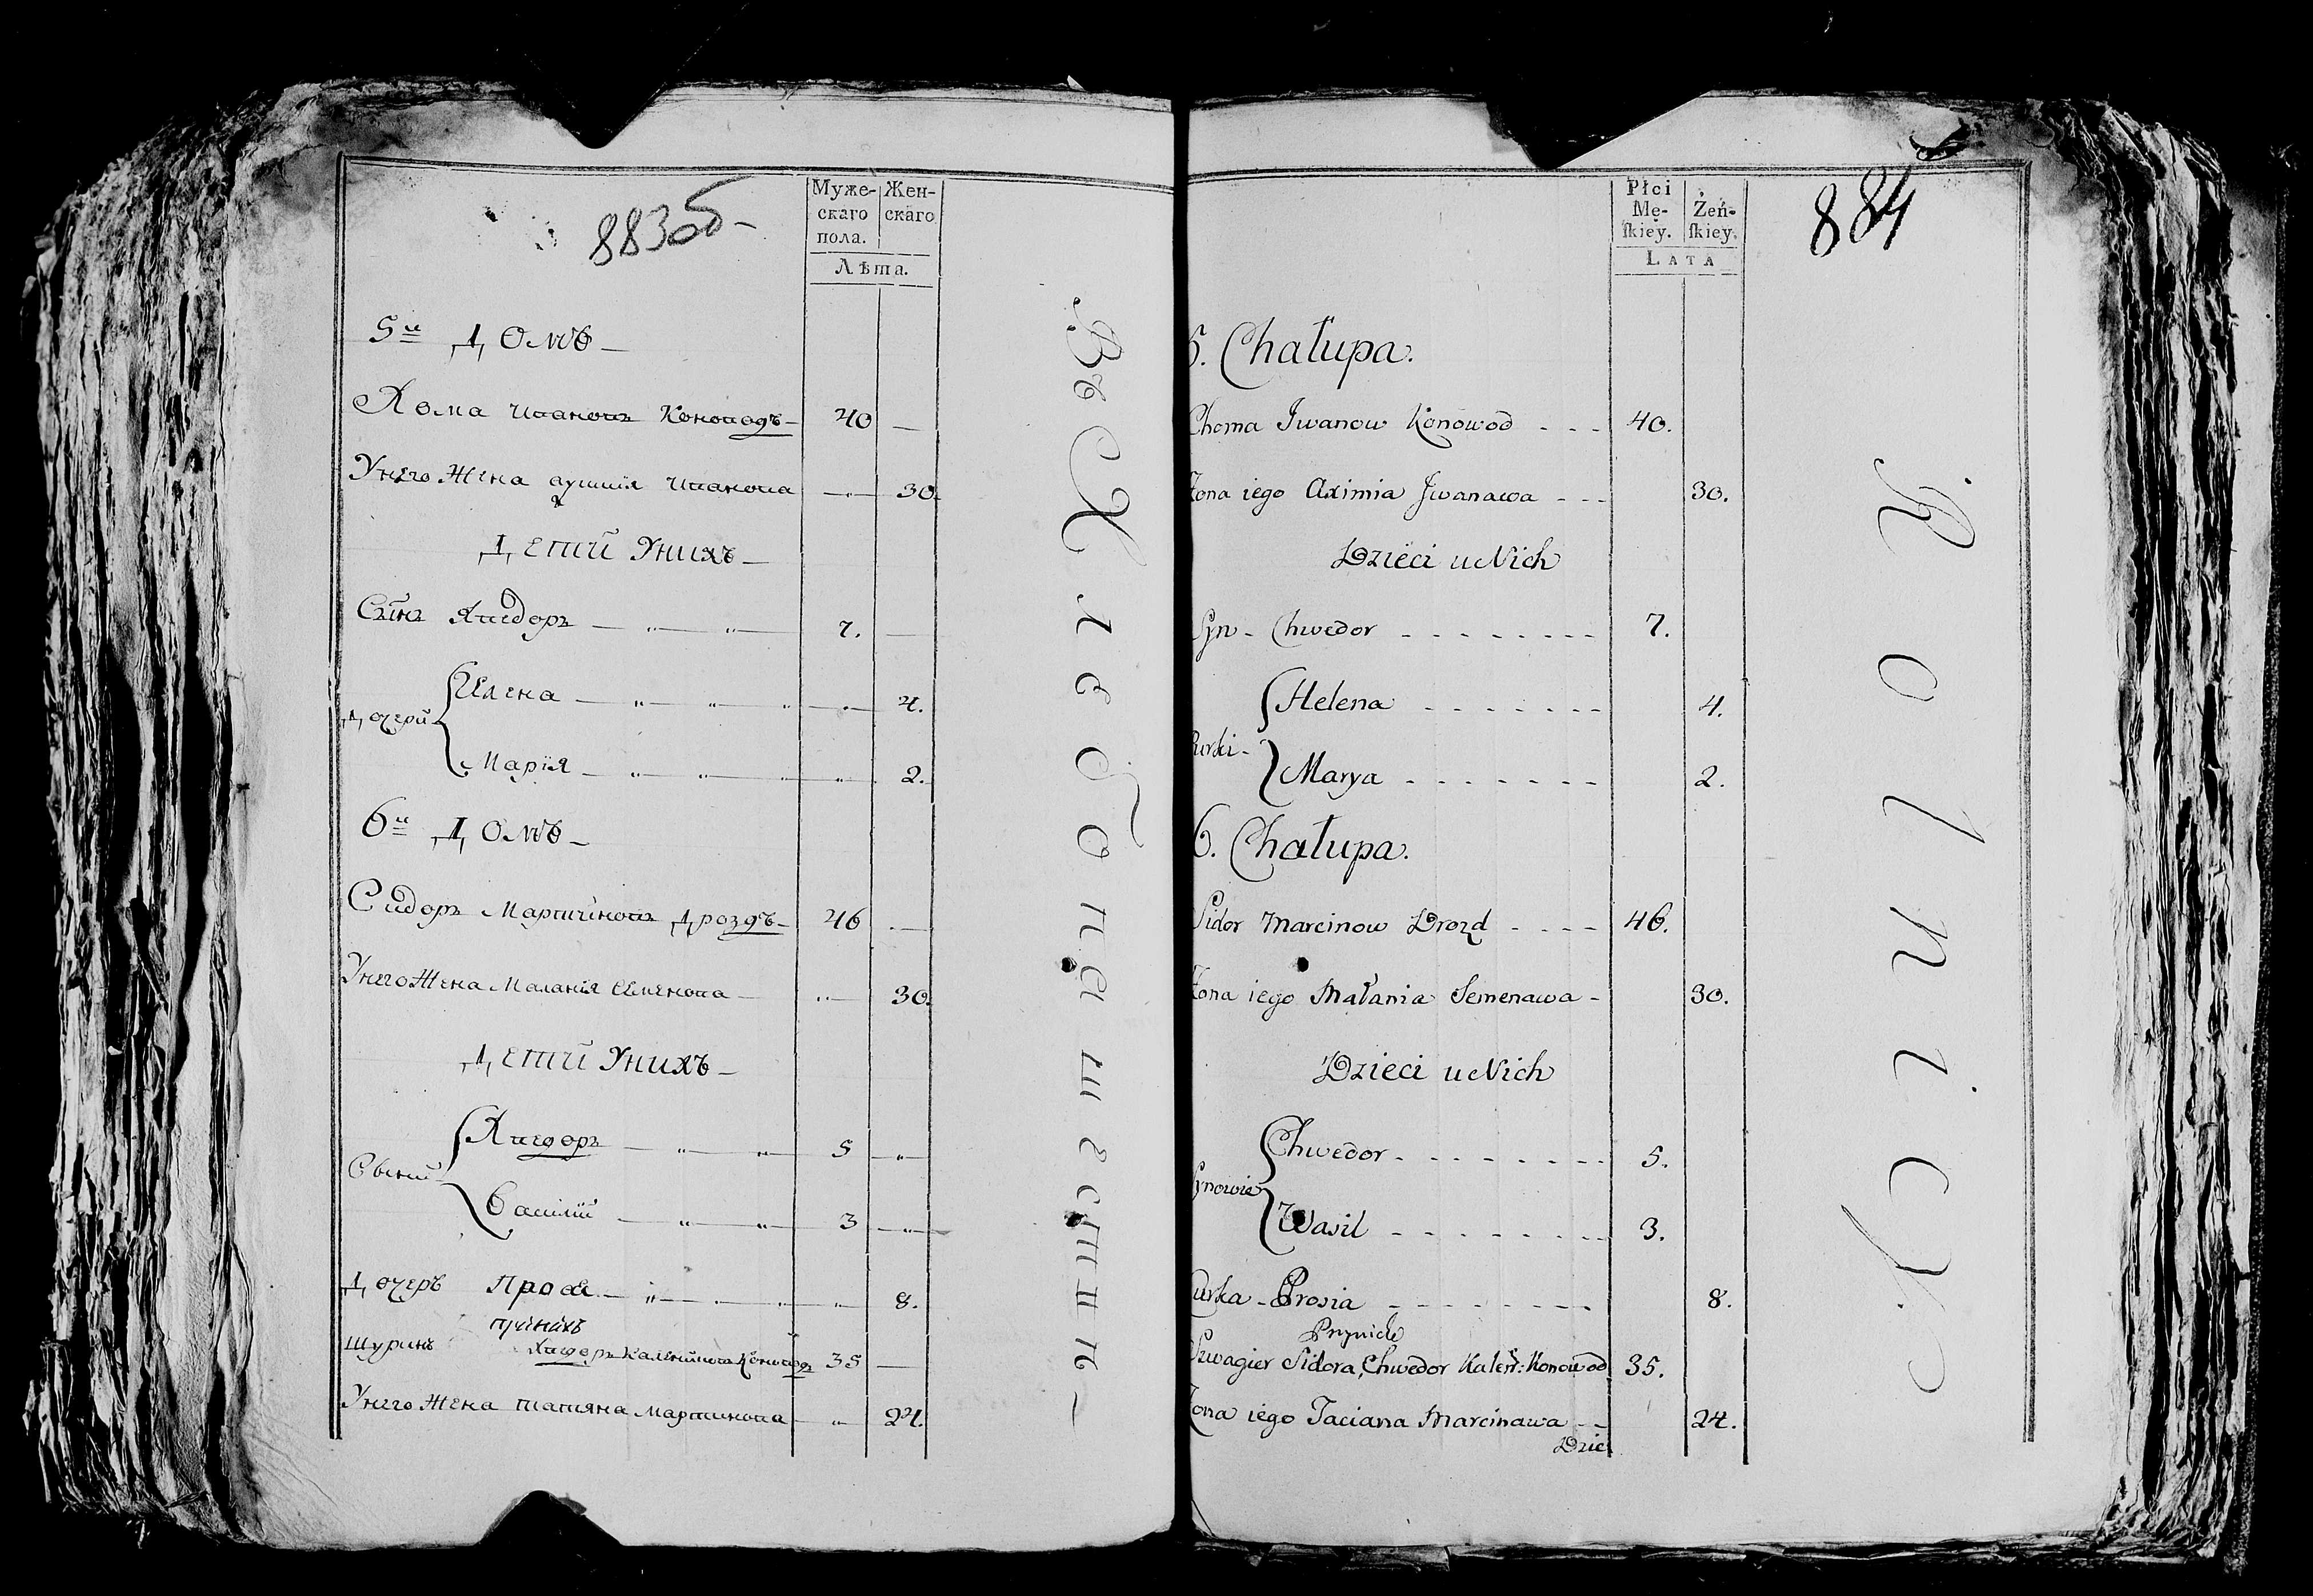 883об-
Муже-
скаго
пола.
Жен-
скаго
Лѣта.
5й Домъ
Хома Ивановъ Коноводъ 40
У него Жена Аксимия Иванова 30.
Детий У нихъ
Сынъ Хведоръ 7.
Дочерй
Елена 4.
Мария 2.
6й Домъ
Сидоръ Мартиновъ Дроздъ 46
У него Жена Малания Семенова 30.
Детий У нихъ
Сыный
Хведоръ 5
Василий 3
Дочеръ Прося 8.
Шуринъ Хведоръ Коноводъ 35
У него Жена Татияна Мартинова 24.
Въ Хлебопашестви
884
Płci
Mę-
ſkiey.
Żeń-
ſkiey.
LATA
5. Chałupa.
Choma Jwanow Konowod 40.
Żona iego Aximia Jwanawa 30.
Dzieci u Nich
Syn - Chwedor 7.
Curki -
Helena 4.
Marya 2.
6. Chałupa.
Sidor Marcinow Drozd 46.
Żona iego Małania Semenawa 30.
Dzieci u Nich
Synowie
Chwedor 5.
Wasil 3.
Curka - Prosia 8.
Szwagier Sidora, Chwedor Kaleń: Konowod 35.
Żona iego Taciana Marcinawa 24.
Dzie
Rolnicy